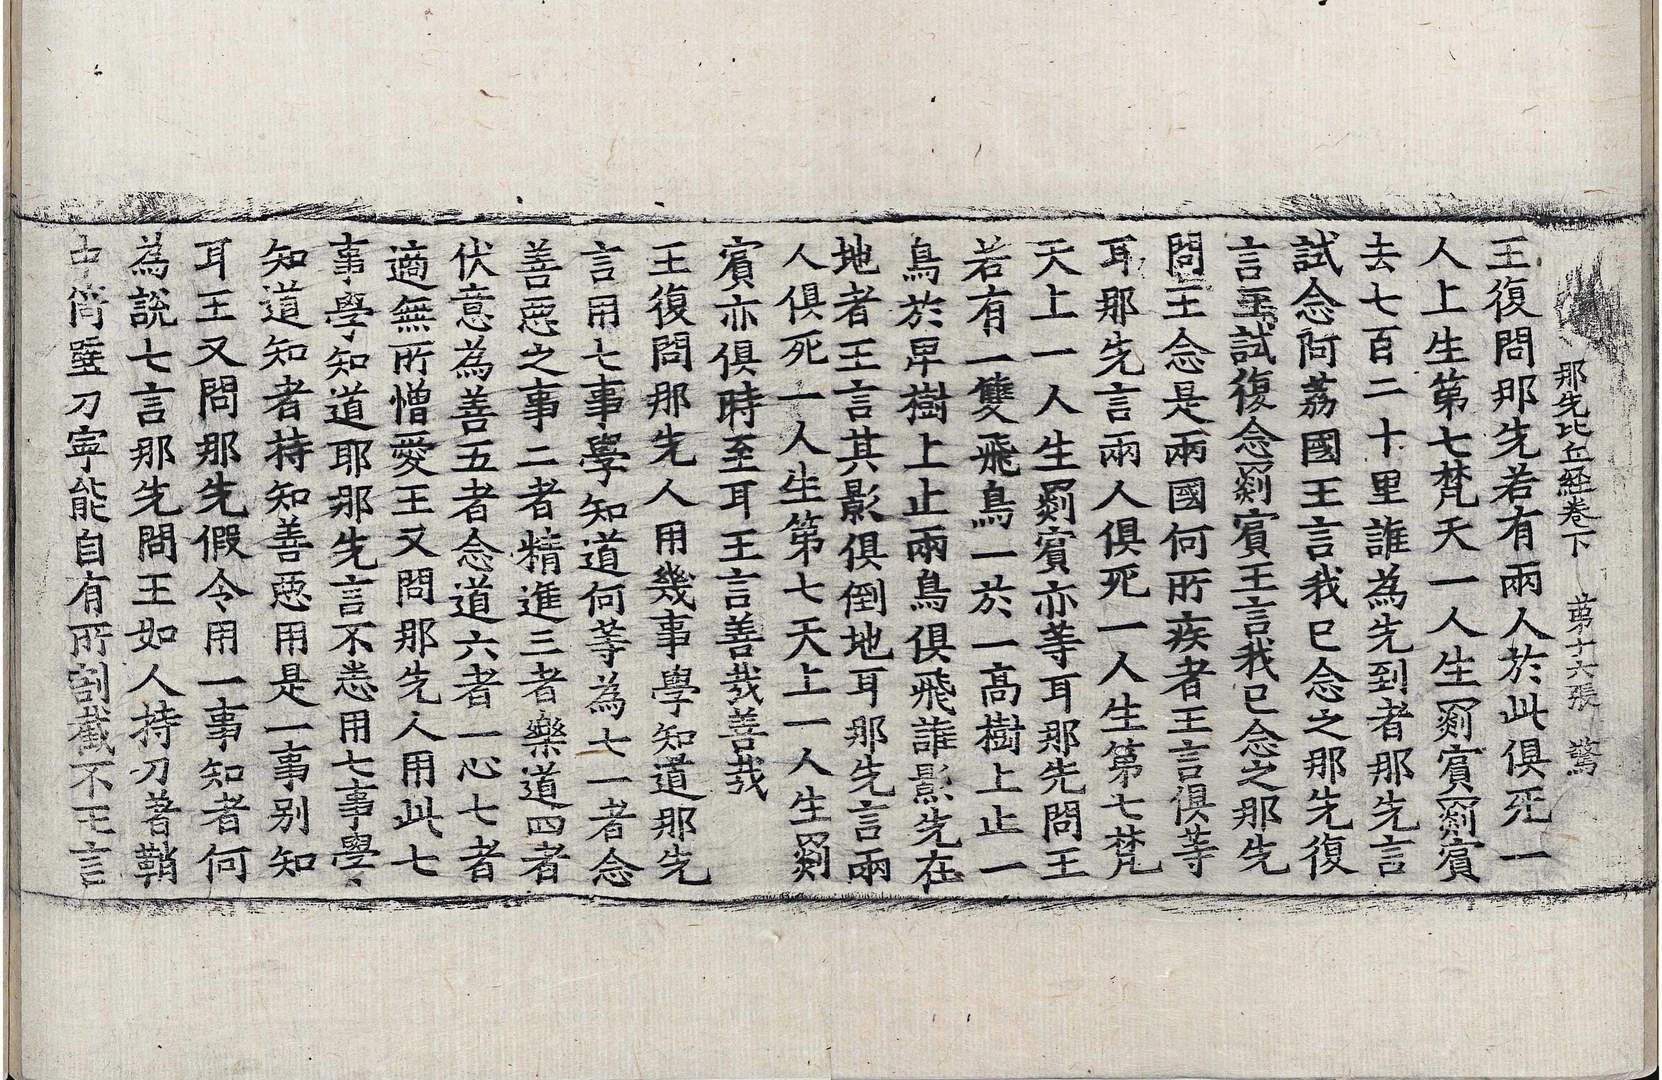 那先比丘経卷下　第十六張　驚
王復問那先若有兩人於此俱死一
人上生第七梵天一人生罽賔罽賔
去七百二十里誰為先到者那先言
試念阿荔國王言我已念之那先復
言王試復念罽賔王言我已念之那先
問王念是兩國何所疾者王言俱等
耳那先言兩人俱死一人生第七梵
天上一人生罽賔亦等耳那先問王
若有一雙飛鳥一於一高樹上止一
鳥於卑樹上止兩鳥俱飛誰影先在
地者王言其影俱倒地耳那先言兩
人俱死一人生第七天上一人生罽
賔亦俱時至耳王言善哉善哉
王復問那先人用幾事學知道那先
言用七事學知道何等為七一者念
善惡之事二者精進三者樂道四者
伏意為善五者念道六者一心七者
適無所憎愛王又問那先人用此七
事學知道耶那先言不悉用七事學
知道知者持知善惡用是一事别知
耳王又問那先假令用一事知者何
為說七言那先問王如人持刀著鞘
中倚壁刀寧能自有所割截不王言